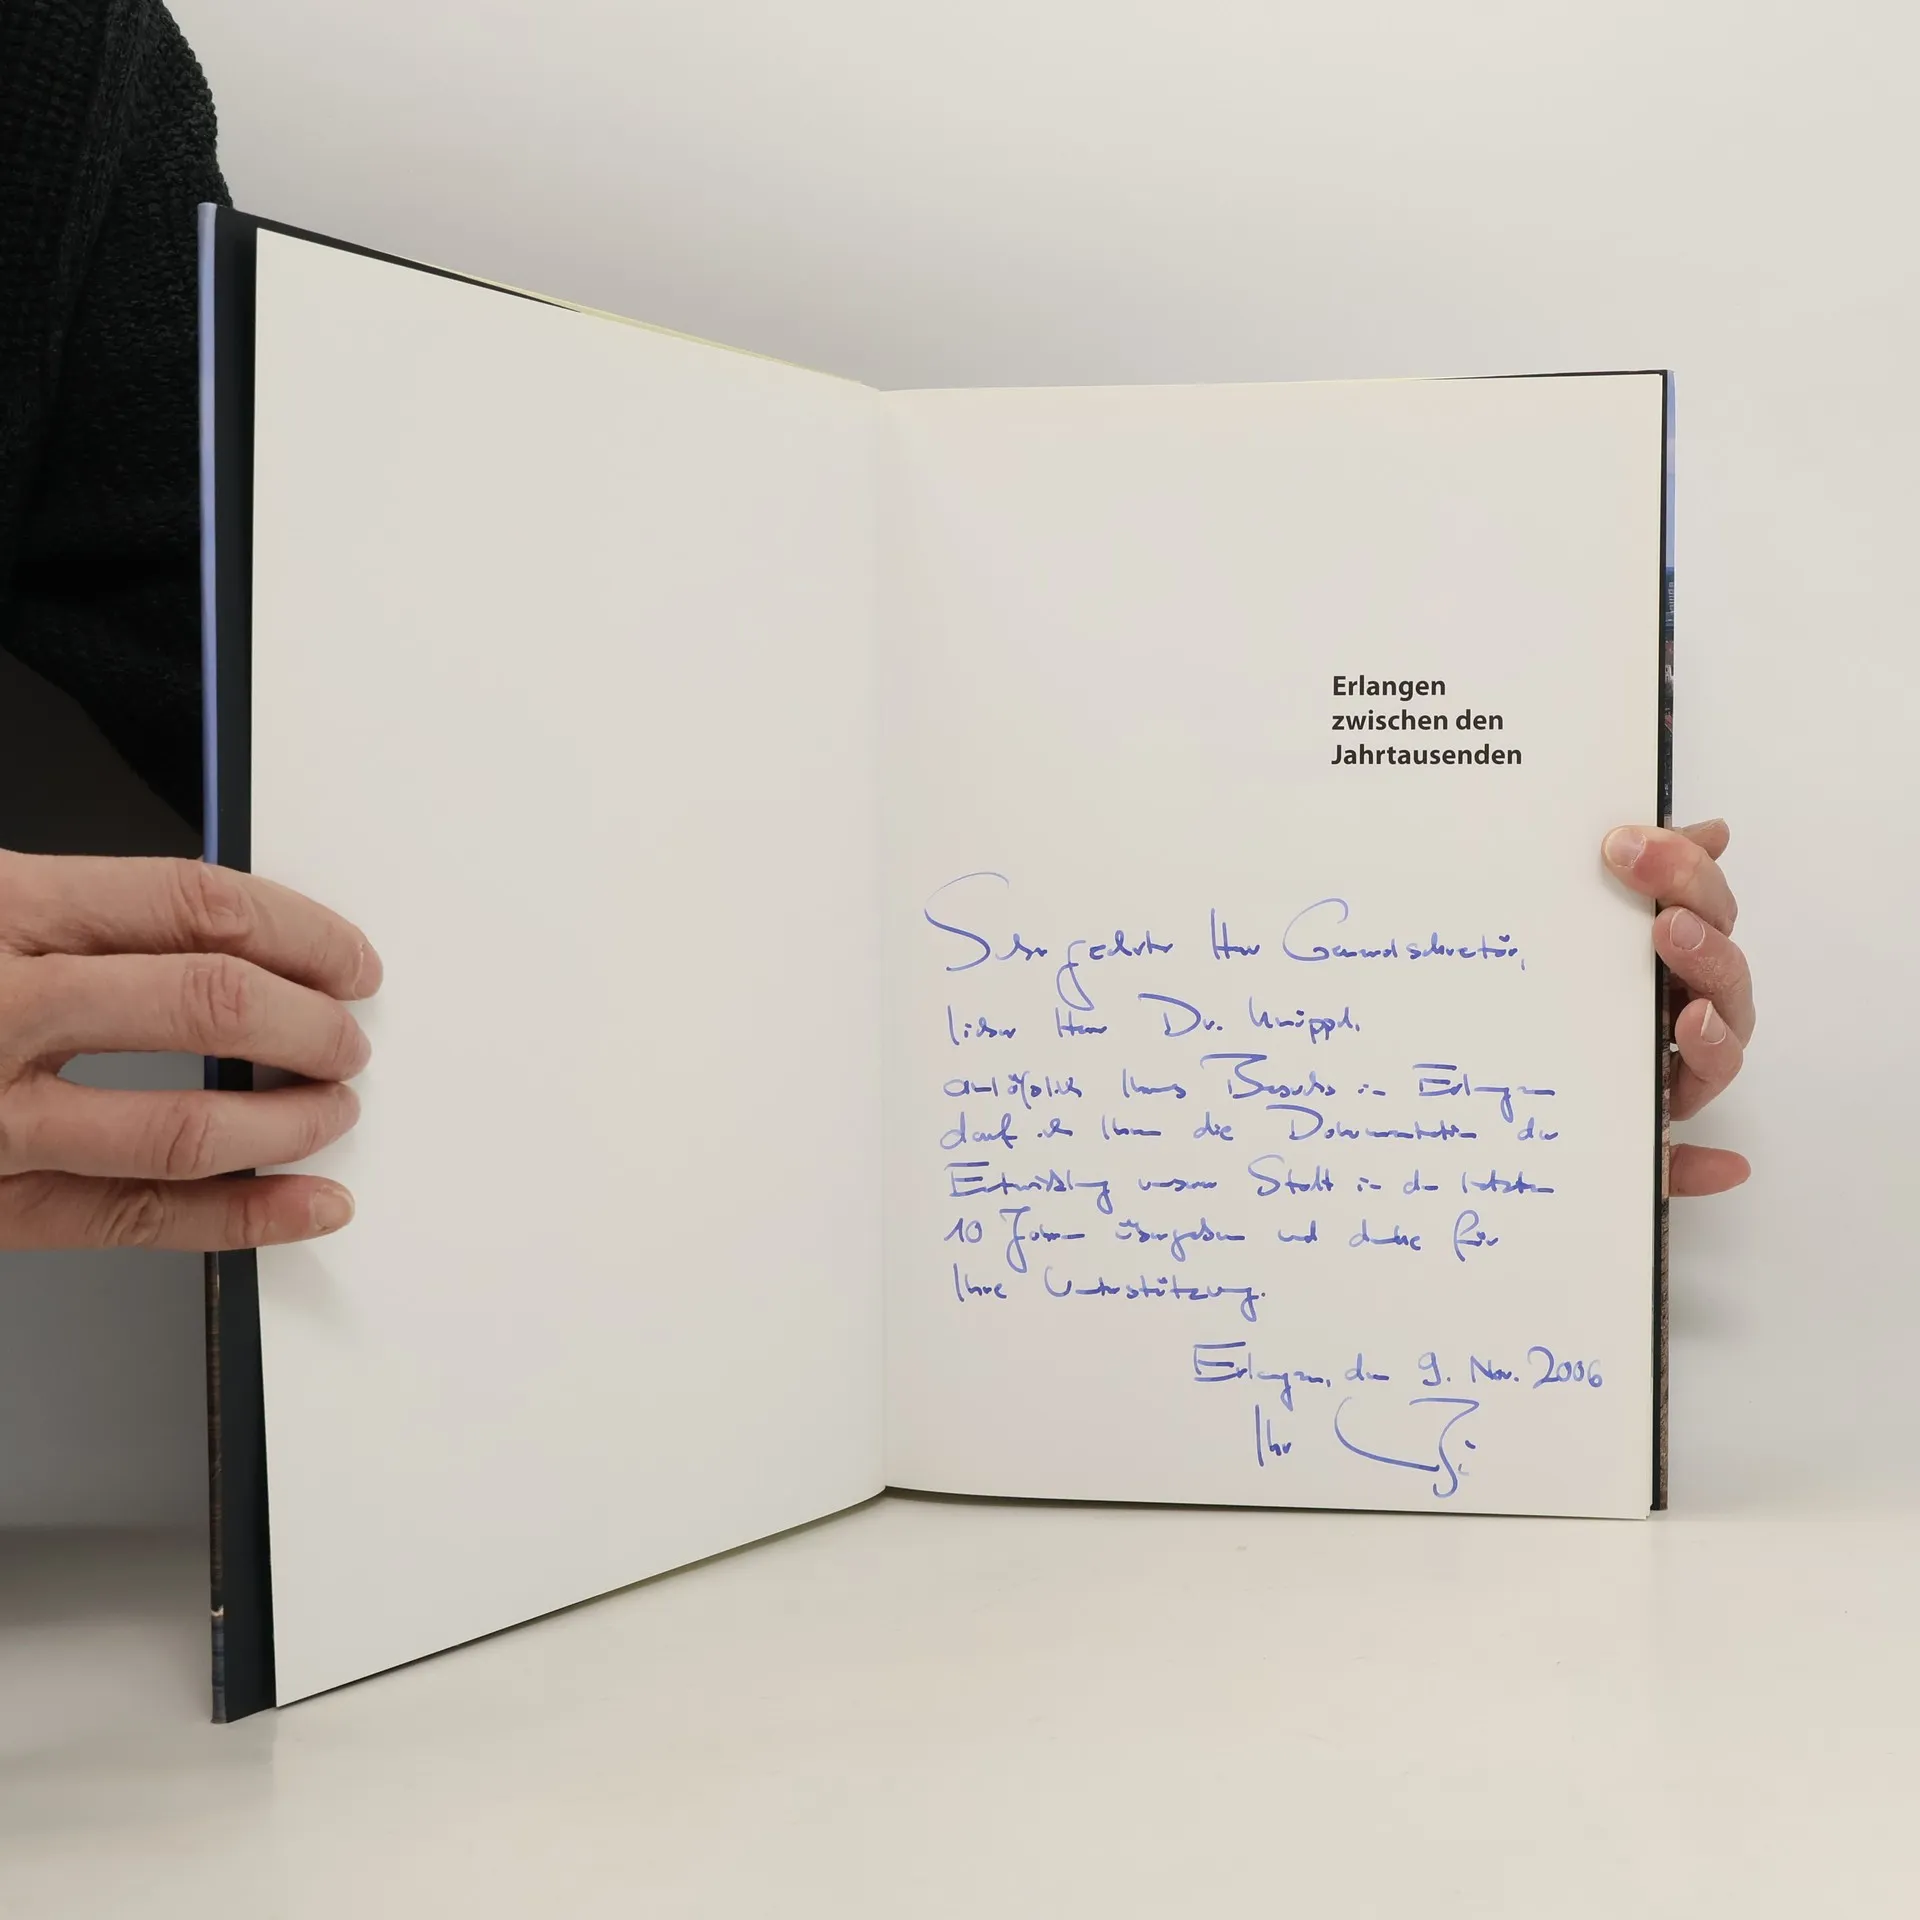 Erlangen
zwischen den
Jahrtausenden
Sehr geehrter Herr Generalsekretär,
lieber Herr Dr. Knüppel,
anläßlich Ihres Besuchs in Erlangen
darf ich Ihnen die Dokumentation der
Entwicklung unserer Stadt in den letzten
10 Jahren übergeben und danke für
Ihre Unterstützung.
Erlangen, den 9. Nov. 2006
Ihr